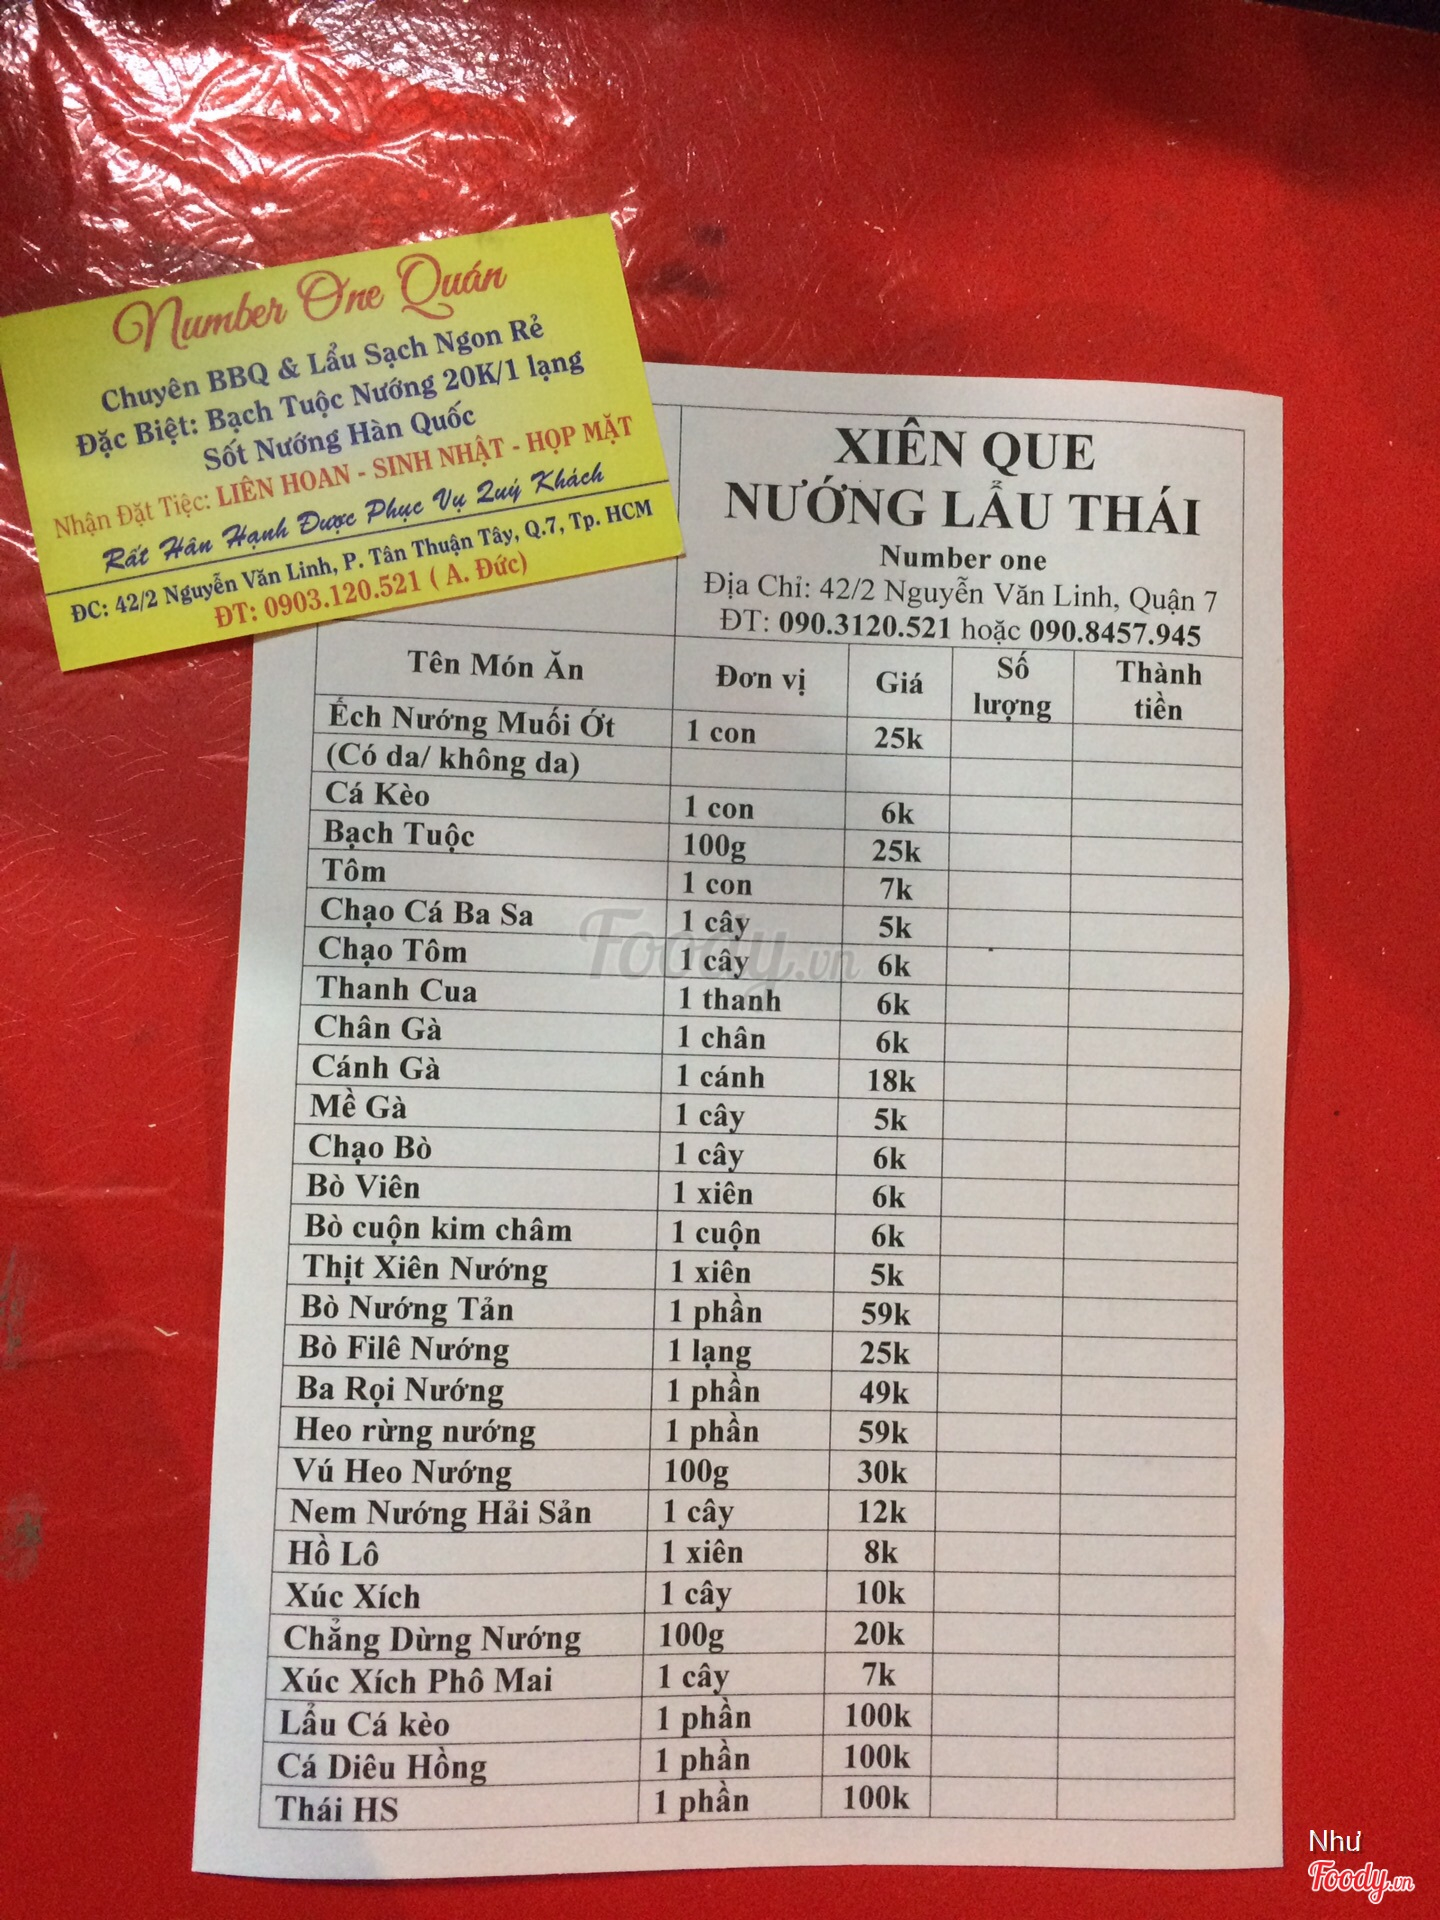 Number One Quán
Chuyên BBQ & Lẩu Sạch Ngon Rẻ
Đặc Biệt: Bạch Tuộc Nướng 20K/1 lạng
Sốt Nướng Hàn Quốc
Nhận Đặt Tiệc: LIÊN HOAN - SINH NHẬT - HỌP MẶT
Rất Hân Hạnh Được Phục Vụ Quý Khách
ĐC: 42/2 Nguyễn Văn Linh, P. Tân Thuận Tây, Q.7, Tp. HCM
ĐT: 0903.120.521 ( A. Đức)
XIÊN QUE
NƯỚNG LẨU THÁI
Number one
Địa Chỉ: 42/2 Nguyễn Văn Linh, Quận 7
ĐT: 090.3120.521 hoặc 090.8457.945
Tên Món Ăn Đơn vị Giá Số lượng Thành tiền
Ếch Nướng Muối Ớt 1 con 25k
(Có da/ không da)
Cá Kèo 1 con 6k
Bạch Tuộc 100g 25k
Tôm 1 con 7k
Chạo Cá Ba Sa 1 cây 5k
Chạo Tôm 1 cây 6k
Thanh Cua 1 thanh 6k
Chân Gà 1 chân 6k
Cánh Gà 1 cánh 18k
Mề Gà 1 cây 5k
Chạo Bò 1 cây 6k
Bò Viên 1 xiên 6k
Bò cuộn kim châm 1 cuộn 6k
Thịt Xiên Nướng 1 xiên 5k
Bò Nướng Tản 1 phần 59k
Bò Filê Nướng 1 lạng 25k
Ba Rọi Nướng 1 phần 49k
Heo rừng nướng 1 phần 59k
Vú Heo Nướng 100g 30k
Nem Nướng Hải Sản 1 cây 12k
Hồ Lô 1 xiên 8k
Xúc Xích 1 cây 10k
Chẳng Dừng Nướng 100g 20k
Xúc Xích Phô Mai 1 cây 7k
Lẩu Cá kèo 1 phần 100k
Cá Diêu Hồng 1 phần 100k
Thái HS 1 phần 100k
Foody.vn
Như
Foody.vn